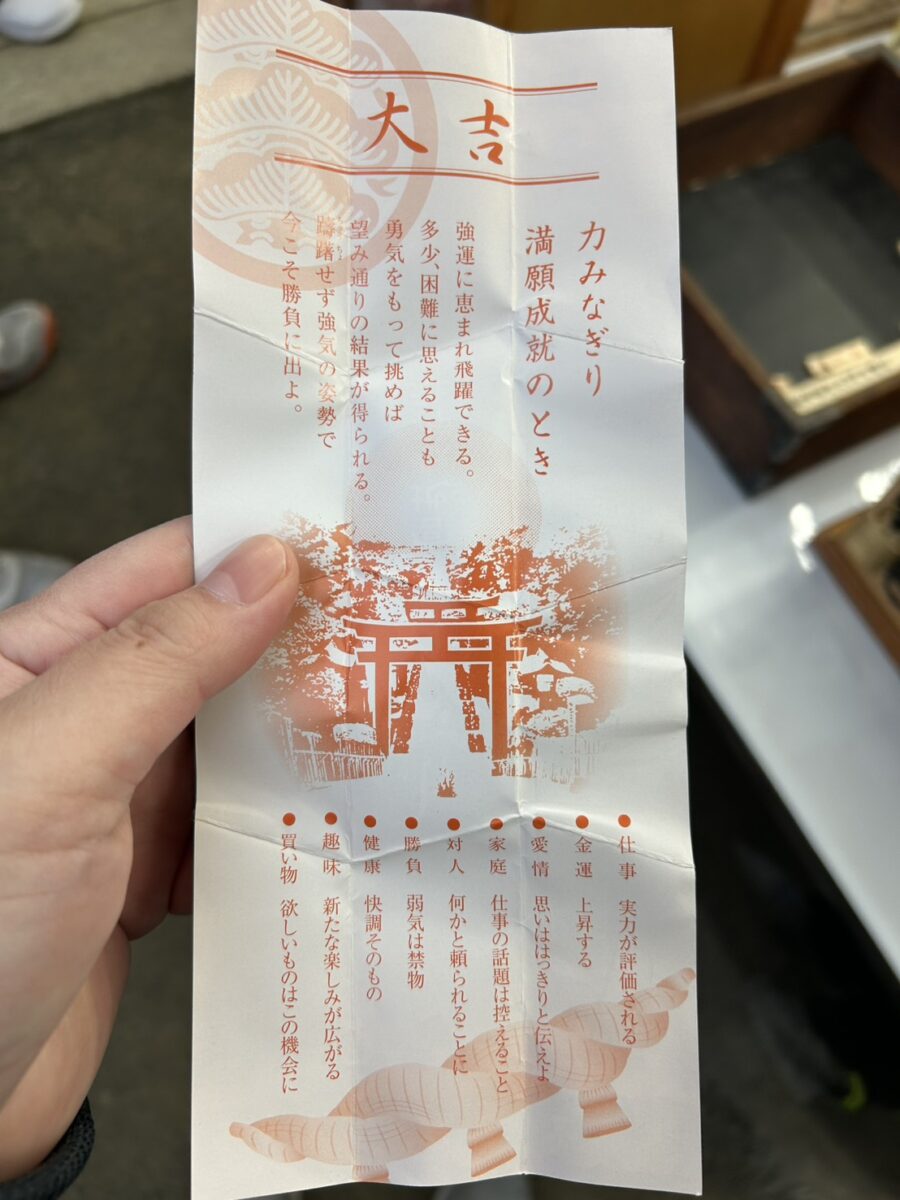 大吉
力みなぎり
満願成就のとき
強運に恵まれ飛躍できる。
多少、困難に思えることも
勇気をもって挑めば
望み通りの結果が得られる。
躊躇せず強気の姿勢で
今こそ勝負に出よ。
●仕事 実力が評価される
●金運 上昇する
●愛情 思いははっきりと伝えよ
●家庭 仕事の話題は控えること
●対人 何かと頼られることに
●勝負 弱気は禁物
●健康 快調そのもの
●趣味 新たな楽しみが広がる
●買い物 欲しいものはこの機会に